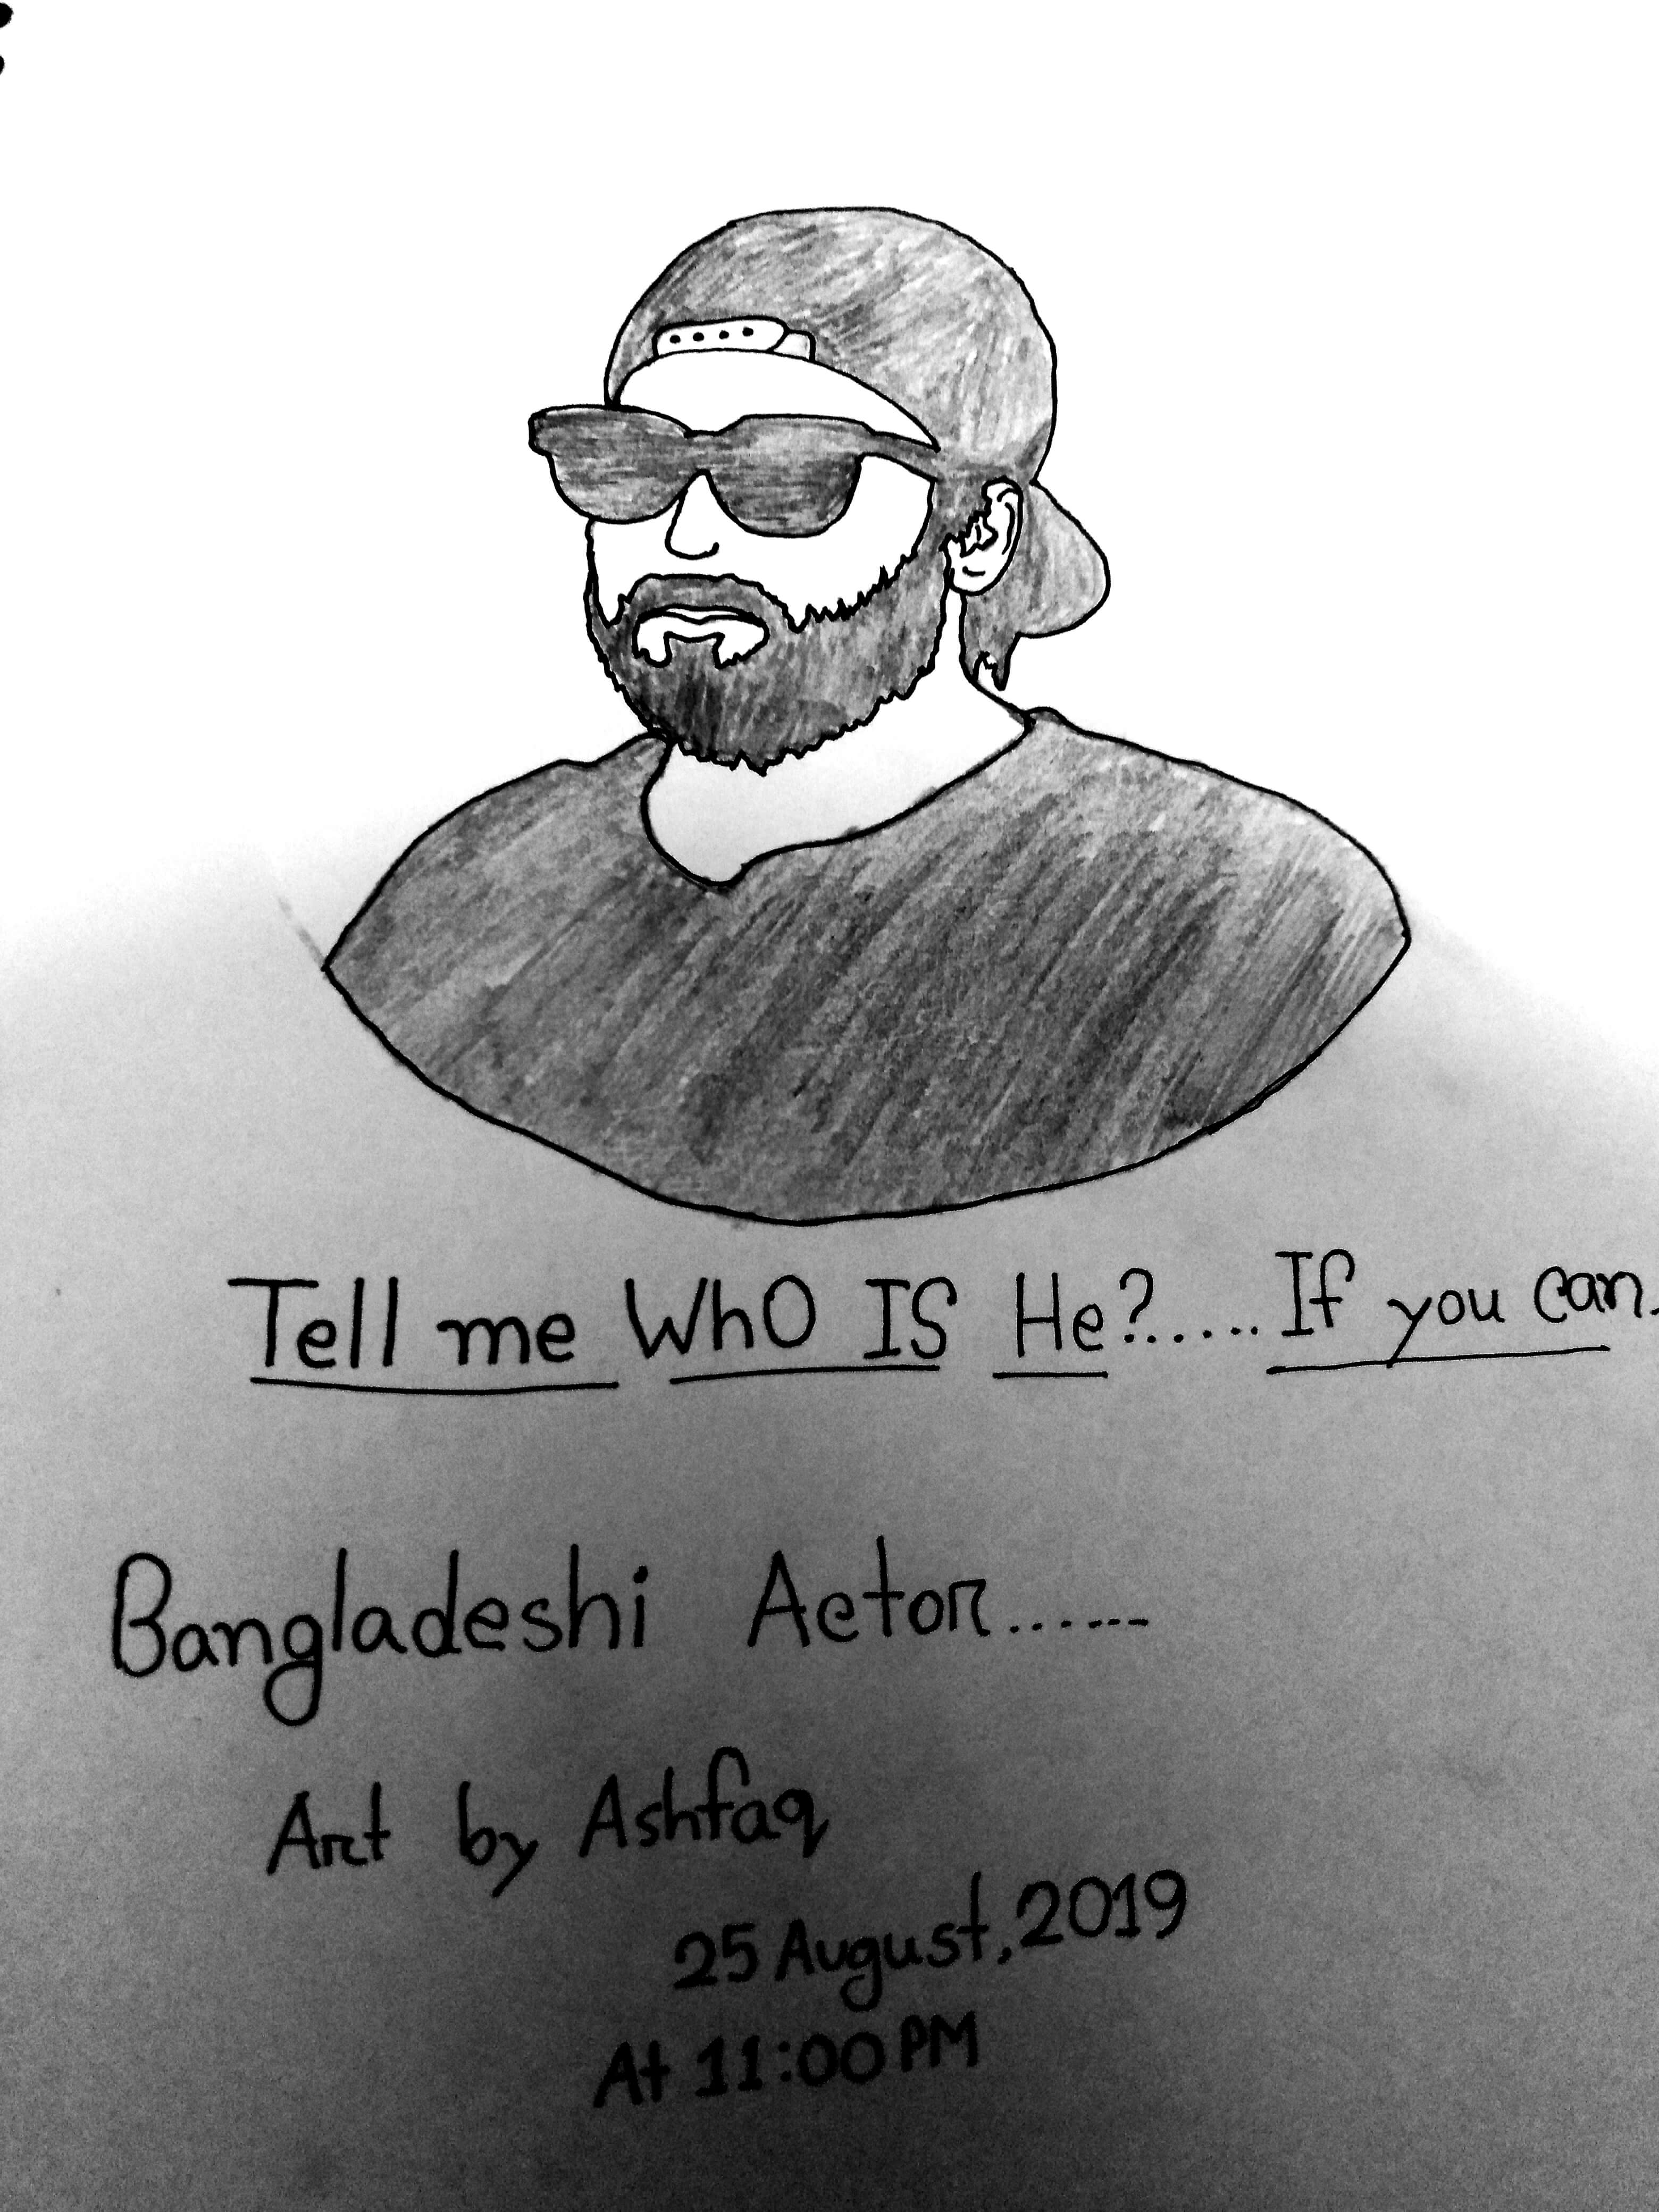 Tell me WhO IS He?..... If you can.
Bangladeshi Actor.........
Art by Ashfaq
25 August, 2019
At 11:00 PM